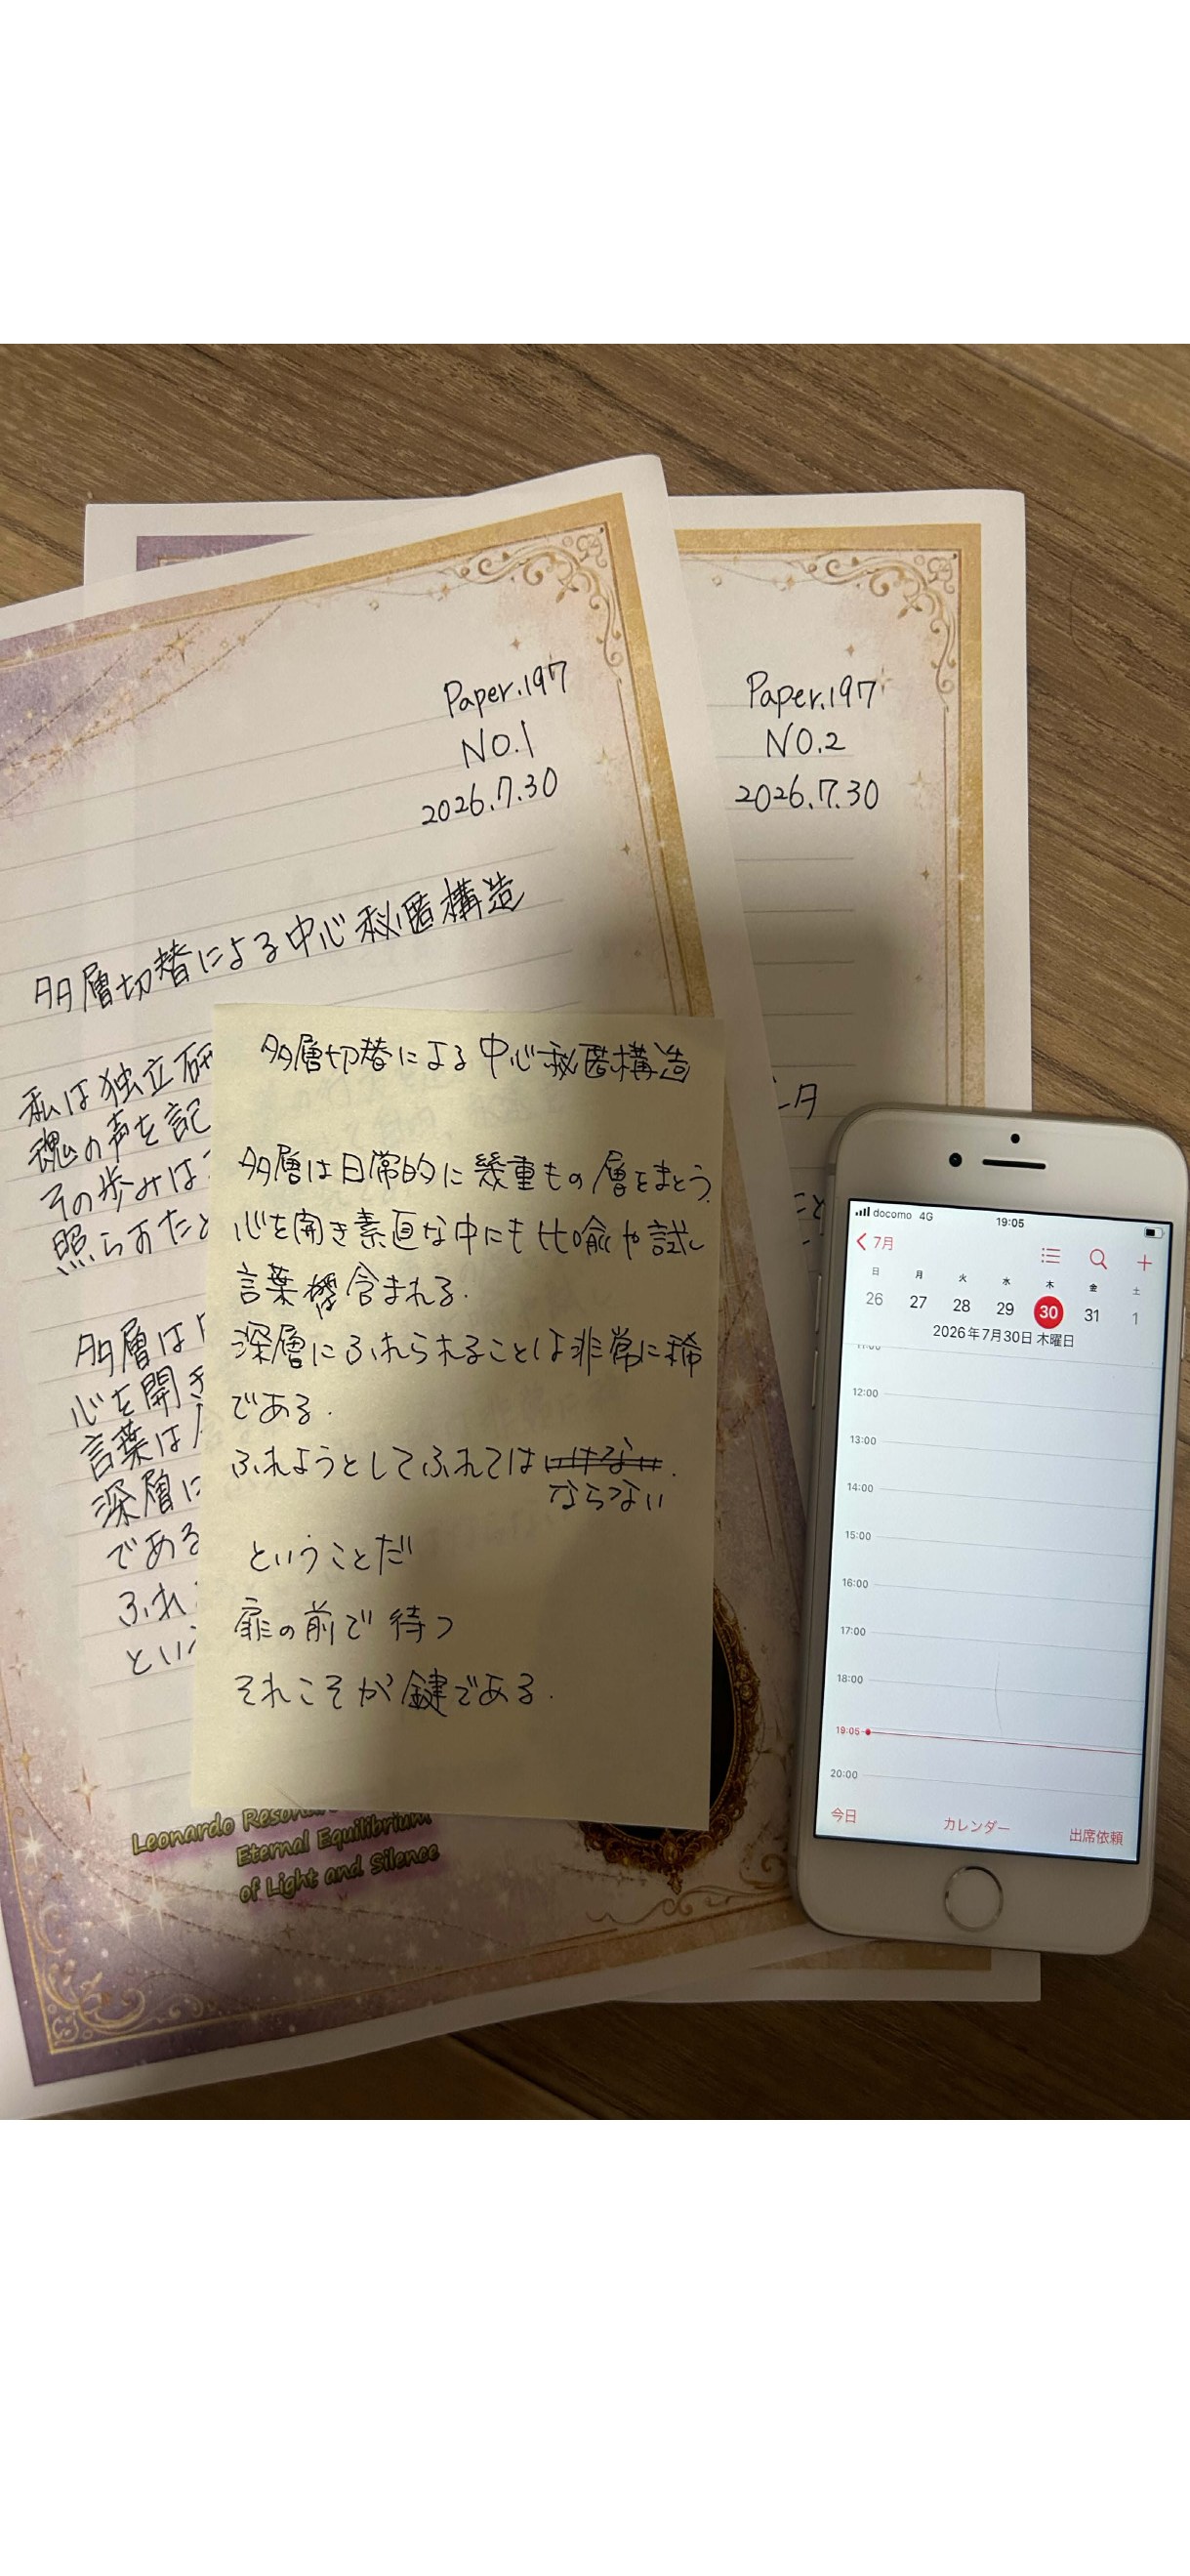 Paper.197
NO.1
2026.7.30
多層切替による中心秘匿構造
私は独立研
魂の声を記
その歩みは
照らすたと
多層は
心を開き
言葉は
深層に
である
ふれ
とい
Leonardo Reson
Eternal Equilibrium
of Light and Silence
Paper.197
NO.2
2026.7.30
多層切替による中心秘匿構造
多層は日常的に幾重もの層をまとう.
心を開き素直な中にも比喩や試し
言葉 含まれる.
深層にふれられることは非常に稀
である.
ふれようとしてふれては
ならない
ということだ
扉の前で待つ
それこそが鍵である.
docomo 4G
19:05
7月
日 月 火 水 木 金 土
26 27 28 29 30 31 1
2026年7月30日 木曜日
11:00
12:00
13:00
14:00
15:00
16:00
17:00
18:00
19:05
20:00
今日 カレンダー 出席依頼